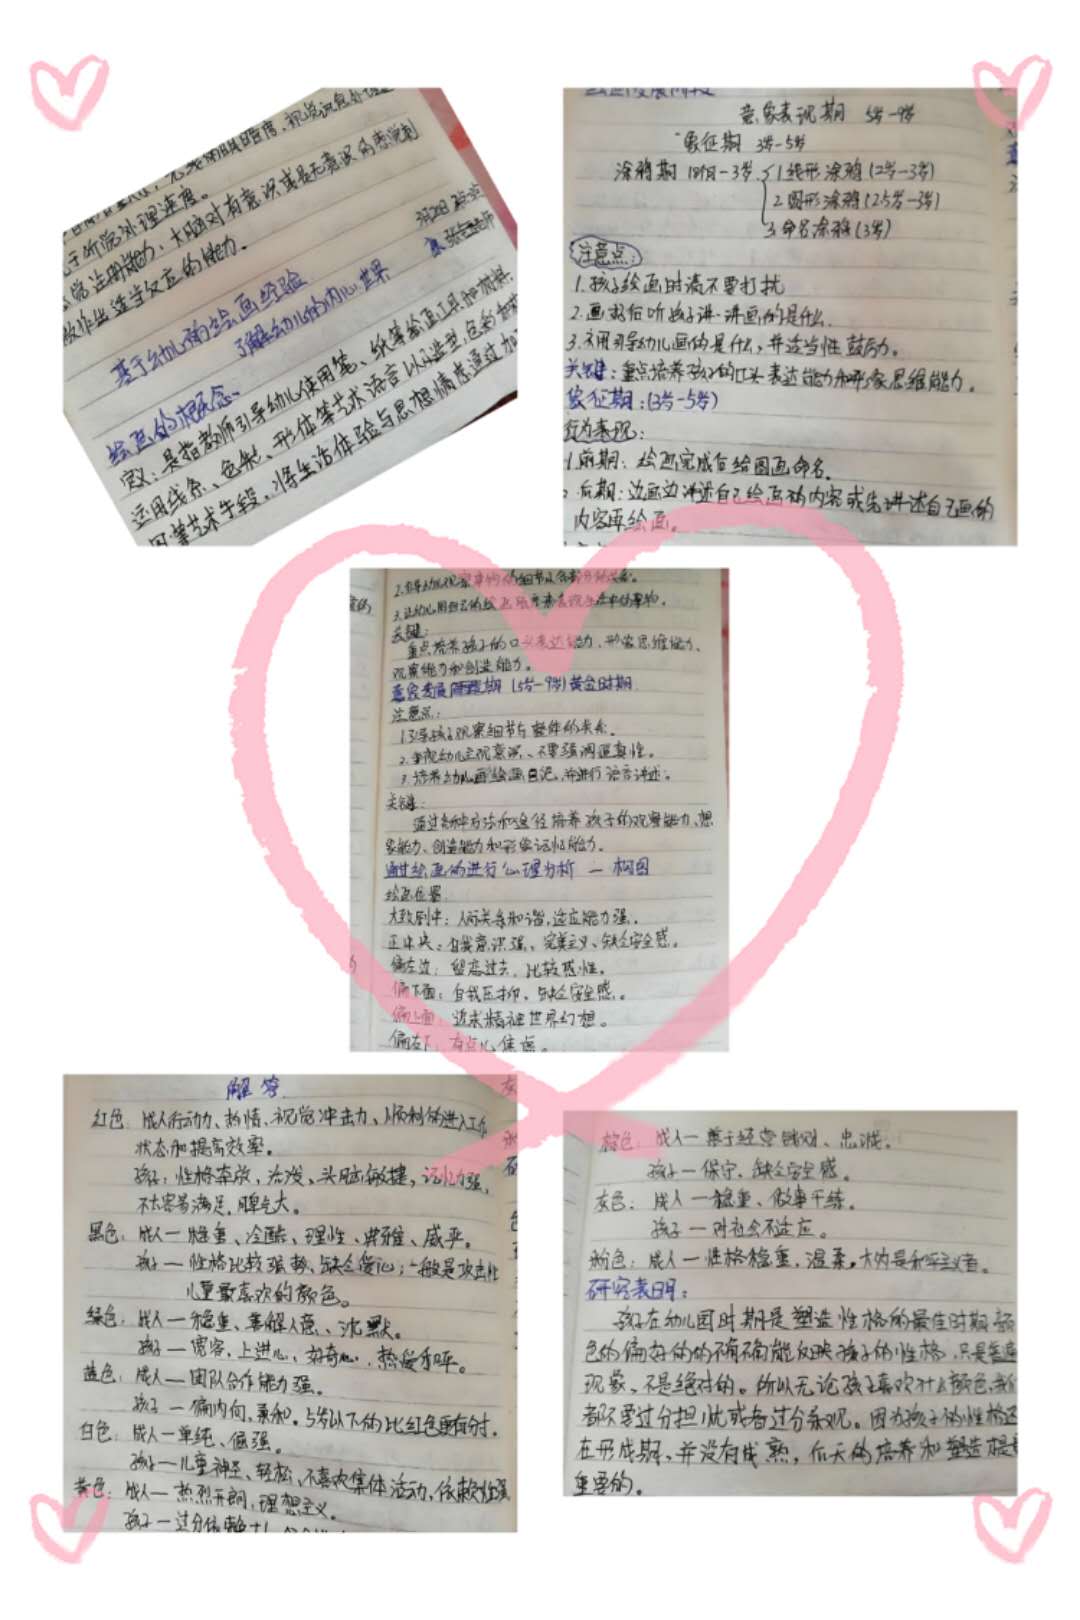 于所需处理速度。
感觉注册能力、大脑对有意识或是无意识的感觉刺
做作出适当反应的能力。
基于幼儿的绘画经验
了解幼儿的内心世界
绘画的概念、
定义：是指教师引导幼儿使用笔、纸等绘画工具和材料、
运用线条、色彩、形体等艺术语言以及造型、色彩和构
图等艺术手段，将生活体验与思想情感通过加
意象表现期 5岁-9岁
象征期 3岁-5岁
涂鸦期 18个月-3岁 1.线形涂鸦(2岁-3岁)
2.圆形涂鸦(2.5岁-3岁)
3.命名涂鸦(3岁)
注意点：
1.孩子绘画时请不要打扰
2.画好后听孩子讲一讲画的是什么.
3.引导幼儿画的是什么,并适当性鼓励。
关键：重点培养孩子的口头表达能力和形象思维能力。
象征期：(3岁-5岁)
行为表现：
1.前期：绘画完成后给图画命名.
2.后期：边画边讲述自己绘画的内容或先讲述自己画的
内容再绘画。
关键：
重点培养孩子的口头表达能力、形象思维能力、
观察能力和创造能力。
意象表现期 (5岁-9岁)黄金时期
注意点：
1.引导孩子观察细节与整体的关系.
2.重视幼儿主观意识、不要强调逼真性。
3.培养幼儿画绘画日记,并进行语言讲述。
关键：
通过各种方法和途径培养孩子的观察能力、想
象能力、创造能力和形象记忆能力。
通过绘画的进行心理分析 — 构图
绘画位置
大致居中：人际关系和谐,适应能力强。
正中央：自我意识强、完美主义、缺乏安全感。
偏左边：留恋过去,比较感性。
偏下面：自我压抑、缺乏安全感。
偏上面：追求精神世界幻想。
偏左下：有点儿焦虑。
解答
红色：成人行动力、热情、视觉冲击力、顺利的进入工作
状态和提高效率。
孩子：性格奔放、活泼、头脑敏捷,记忆力强,
不太容易满足,脾气大。
黑色：成人—稳重、冷酷、理性、典雅、威严。
孩子—性格比较强势、缺乏爱心；一般是攻击性
儿童最喜欢的颜色。
绿色：成人—稳重、善解人意、沉默。
孩子—宽容,上进心、好奇心、热爱和平。
蓝色：成人—团队合作能力强。
孩子—偏内向,亲和。5岁以下的比红色更有分寸.
白色：成人—单纯、倔强。
孩子—儿童神圣、轻松、不喜欢集体活动,依赖性强
黄色：成人—热烈开朗,理想主义。
孩子—过分依赖
棕色：成人—善于经营钱财、忠诚。
孩子—保守、缺乏安全感。
灰色：成人—稳重、做事干练。
孩子—对社会不适应。
粉色：成人—性格稳重,温柔。大约是和平主义者。
研究表明：
孩子在幼儿园时期是塑造性格的最佳时期颜
色的偏好的的确确能反映孩子的性格,只是普遍
现象,不是绝对的。所以无论孩子喜欢什么颜色,我们
都不要过分担忧或者过分乐观。因为孩子的性格还
在形成期,并没有成熟,后天的培养和塑造很
重要的。